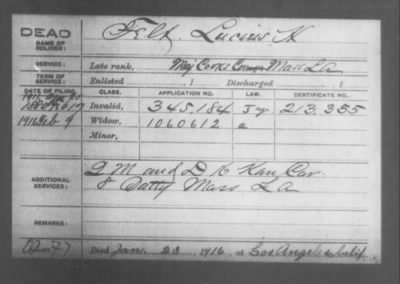 DEAD
NAME OF SOLDIER: Felt, Lucius H
SERVICE: Late rank, Maj Cooks Mass L A
TERM OF SERVICE: Enlisted , Discharged
DATE OF FILING. CLASS. APPLICATION NO. LAW. CERTIFICATE NO.
Invalid, 345,184 213,355
1916 Feb 9 Widow, 1060612 a
Minor,
ADDITIONAL SERVICES: Q M and D K Kan Cav.
8 Batty Mass. L A
REMARKS:
Died Jan. 23, 1916, at Los Angeles Calif.